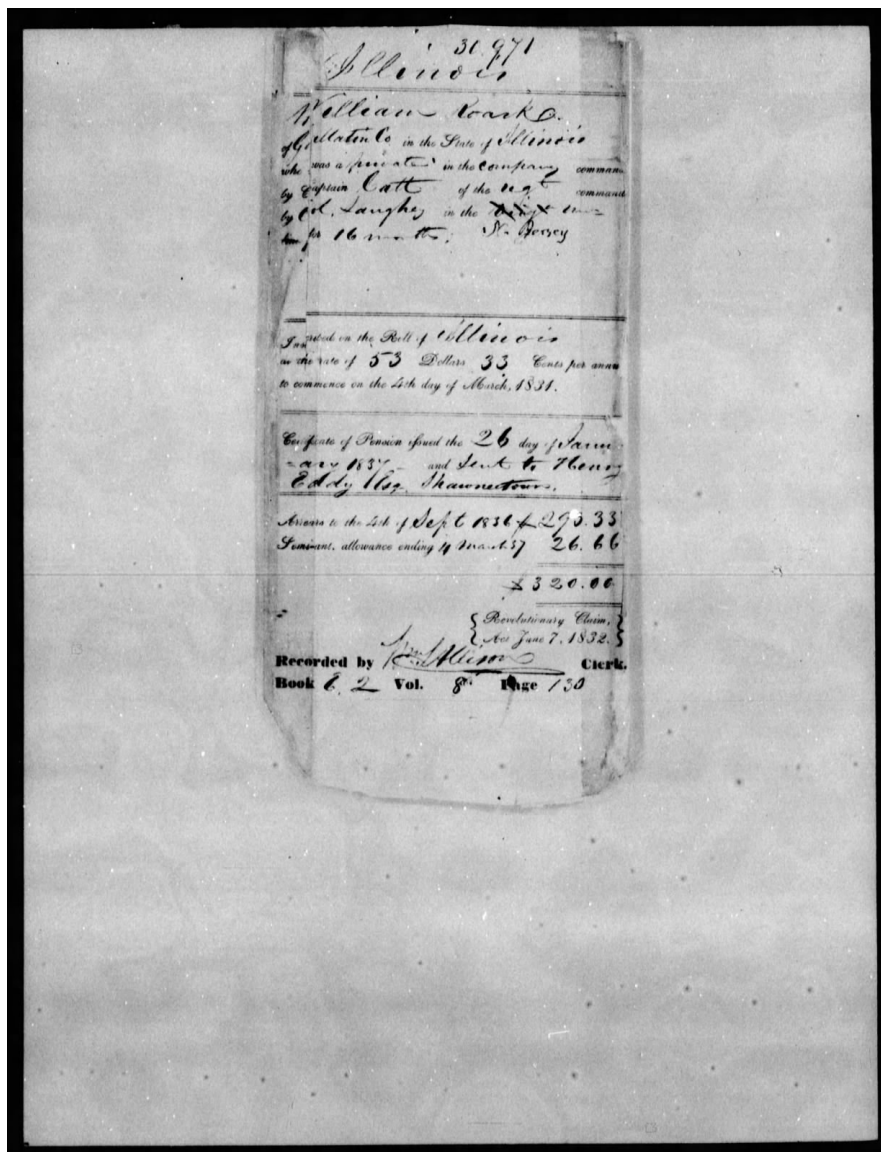 30.971
Illinois
William Roark
of Gallatin Co in the State of Illinois
who was a private in the company command
by Captain Catt of the regt command
by Col. in the
for 16 months; N. Jersey
Inscribed on the Roll of Illinois
at the rate of 53 Dollars 33 Cents per annum
to commence on the 4th day of March, 1831.
Certificate of Pension issued the 26 day of Janu
-ary 1837 and sent to Henry
Eddy Esq. Shawneetown.
Arrears to the 4th of Sept 1836 $ 293.33
Semi-ant. allowance ending 4 March 37 26.66
$320.00
Revolutionary Claim,
Act June 7, 1832.
Recorded by Wm Allison Clerk.
Book E. 2 Vol. 8 Page 130